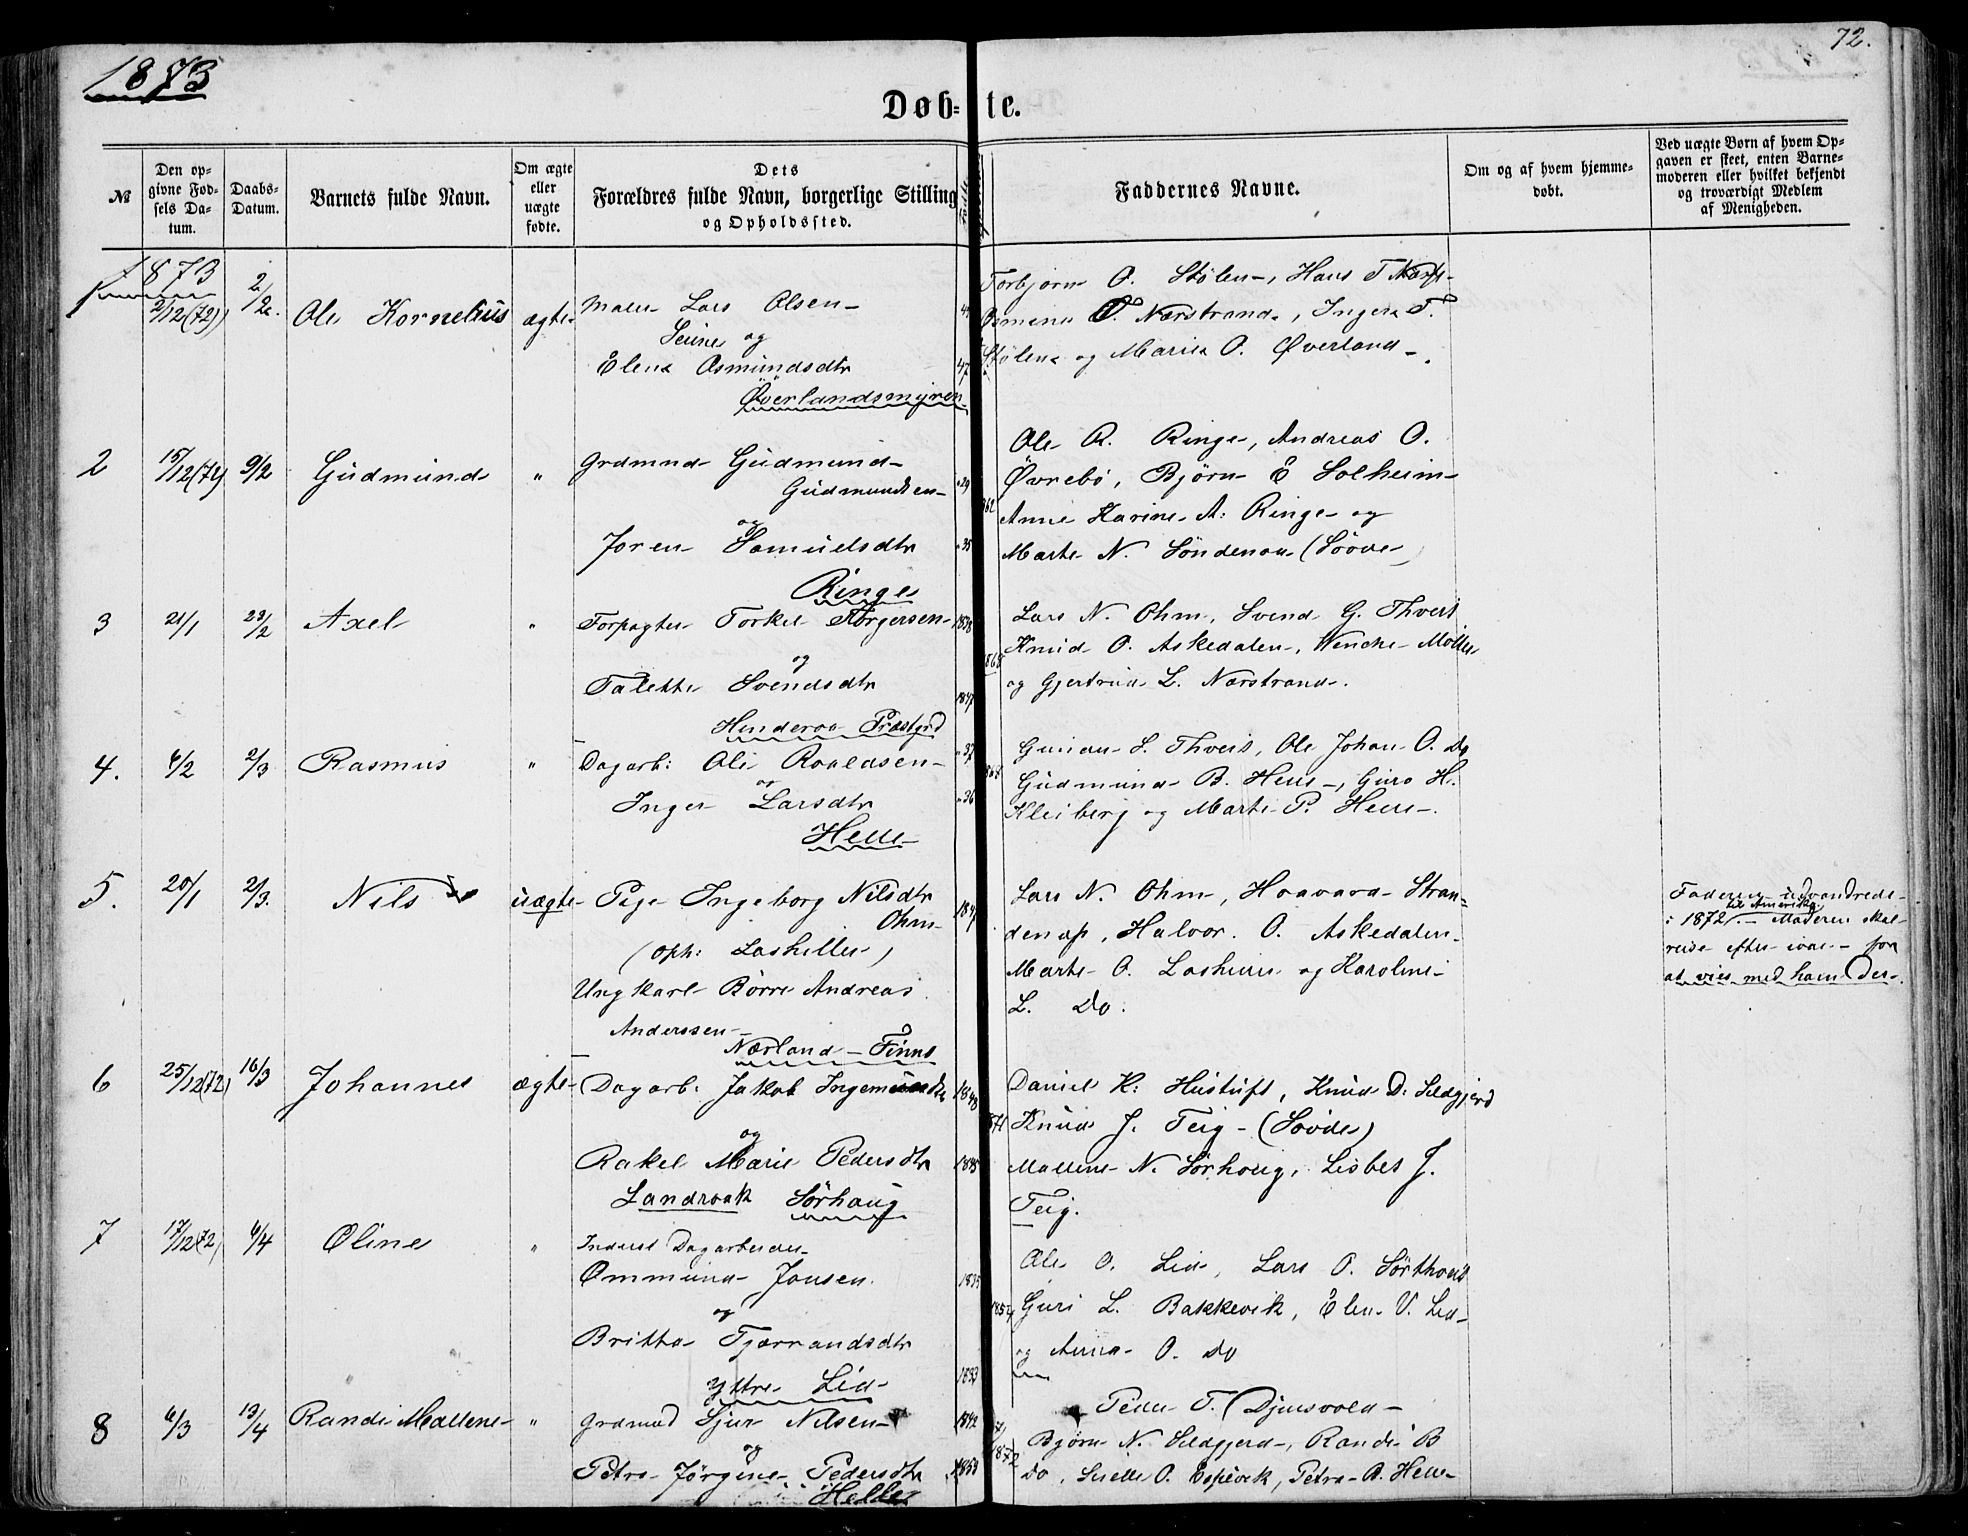 1873
72.
Døb-te.
№
Den op-
givne Fød-
sels Da-
tum.
Daabs-
Datum.
Barnets fulde Navn.
Om ægte
eller
uægte
fødte.
Dets
Forældres fulde Navn, borgerlige Stilling
og Opholdssted.
Faddernes Navne.
Om og af hvem hjemme-
døbt.
Ved uægte Børn af hvem Op-
gaven er skeet, enten Barne-
moderen eller hvilket bekjendt
og troværdigt Medlem
af Menigheden.
1873
2/12(72) 2/2. Ole Kornelius ægte Lars Olsen
og
Elena Osmundsdtr 47
Øverlandsmyren
Torbjørn O. Stølen, Hans T.
O. Nærstrand, Inger T.
Stølen og Maria O. Øverland.
2 15/12(72) 9/2 Gudmund " Grdmnd Gudmund
Gudmundsen 29
og
Joren Samuelsdtr 35
Ringe
Ole R. Ringe, Andreas O.
Øvrebö, Björn E Solheim
Anne Karine A. Ringe og
Marte N. Söndenaa (Søvde)
3 21/1 23/2 Axel " Forpagter Torkel Torgersen 1838
og
Talette Svendsdtr 1847
Hinderaa Præstgrd
Lars N. Ohm, Svend G. Thveit
Knud O. Askedalen, Wenche Möller
og Gjertrud L. Nærstrand.
4. 6/2 2/3 Rasmus " Dagarb: Ole Roaldsen 37
og
Inger Larsdtr 36
Helle
S. Thveit, Ole Johan O. Do
Gudmund B. Helle, Guro H.
Kleiberg og Marte P. Helle.
5. 20/1 2/3. Nils uægte Pige Ingeborg Nilsdtr
Ohm 1847
(oph:
Ungkarl Börre Andreas
Anderssen
Nærland - Finnø
Lars N. Ohm, Haavard Stran=
denap, Halvor. O. Askedalen
Marte O. og Karoline
L. Do.
Faderen udvandrede
til Amerika
i 1872. Moderen skal
reise efter for
at vies med ham der.
6 25/12(72) 16/3 Johannes ægte Dagarb: Jakob 1848
og
Rakel Marie Pedersdtr 1845
Landraak Sörhaug
Daniel K: Hustuft, Knud D. Seldgjerd
Knud J. Teig (Søvde)
Mallene N. Sörhoug, Lisbet J.
Teig.
7 17/12(72) 6/4 Oline " Inderst Dagarbeider
Ommund Jansen. 1835
og
Britha Tjærrandsdtr 1833
Yttre Lid
Ole O. Lid, Lars O.
Guri L. Bakkevik, Elen V. Lid
og Anna O. Do
8 6/3 13/4 Randi Mallene " Grdmnd Sjur Nilsen 1842
og
Petra Jörgine Pedersdtr 1853
Helle
Peder T. Djursvold
Bjørn N. Seldgjerd, Randi B
Do, Siselle O. Espevik, Petra A. Helle